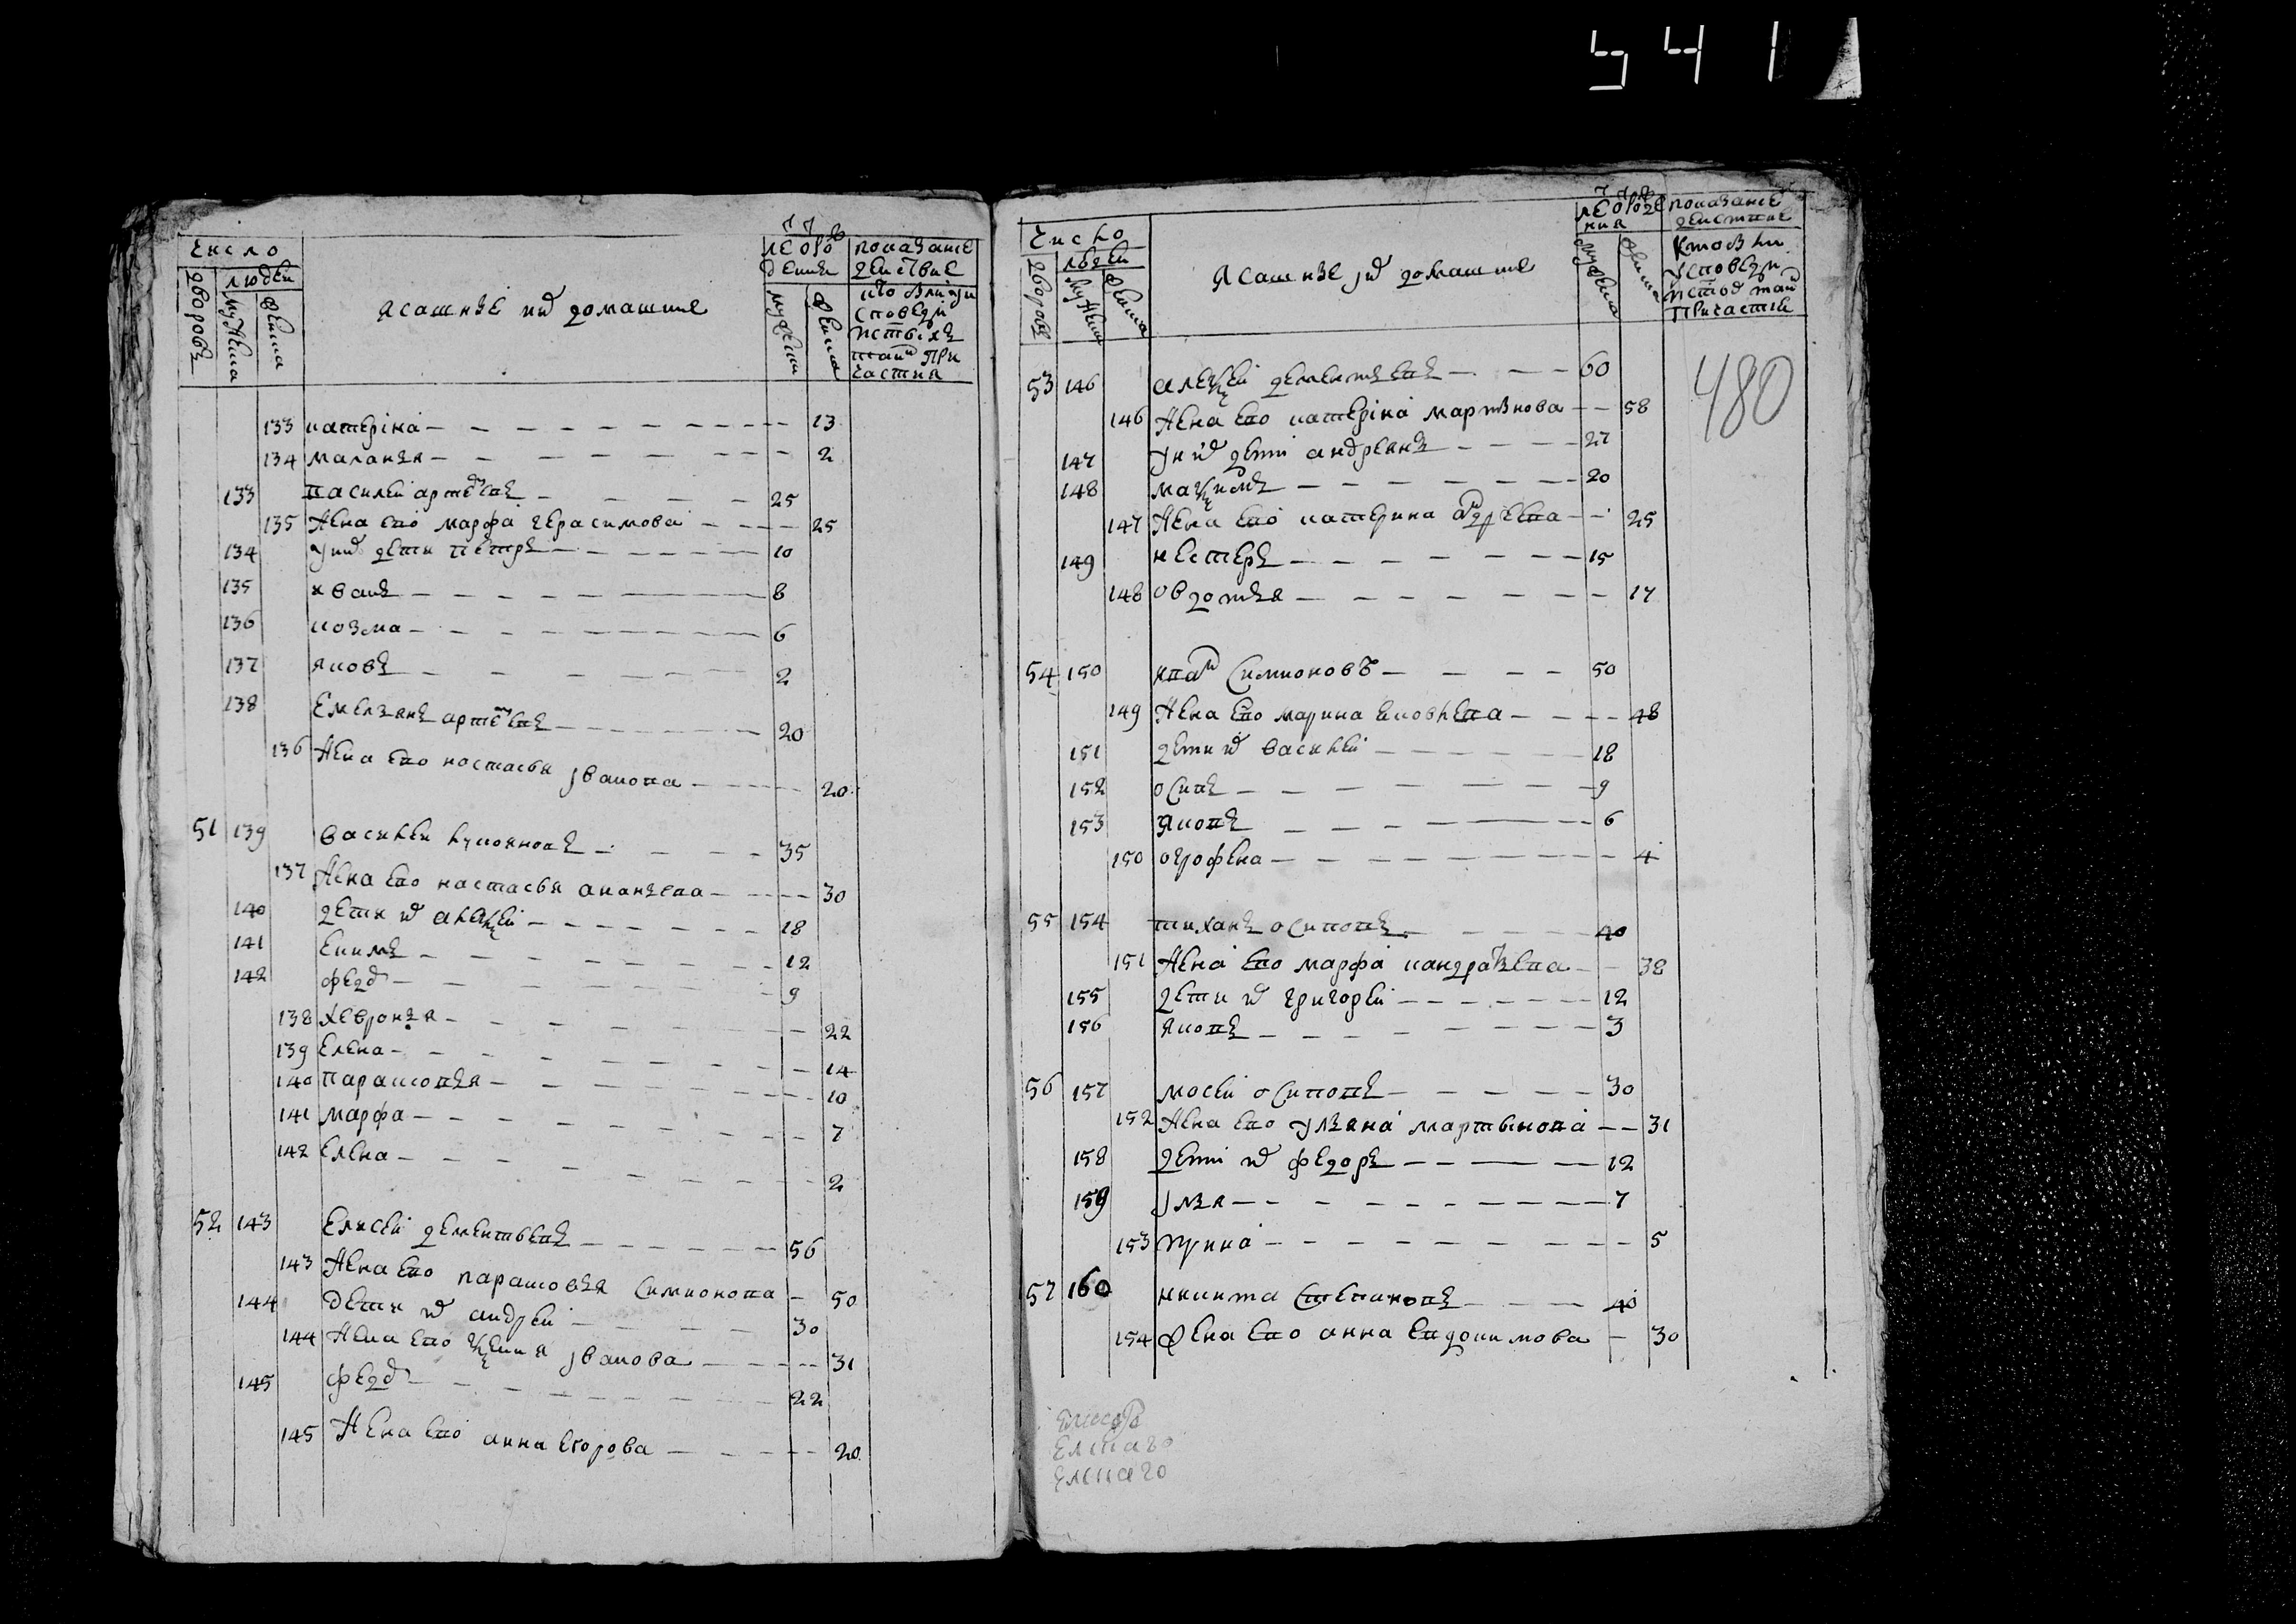 541
число
дворовъ
людей
мужеска
женска
Ясашние их домашние
лет от рождения
мужеска
женска
показание действие
кто были у исповеди и святых таин причастия
133 катерiна 13
134 маланья 2
133 василей артемевъ 25
135 жена ево марфа герасимова 25
134 у них дети петръ 10
135 иванъ 8
136 козма 6
137 яковъ 2
138 Емельянъ артемевъ 20
136 жена ево настасья иванова 20
51 139 василей лукоянова 35
137 жена ево настасья ананьева 30
140 дети их алексей 18
141 екимъ 12
142 федор 9
138 хевронья 22
139 елена 14
140 парасковья 10
141 марфа 7
142 елена 2
52 143 елисей дементьевъ 56
143 жена ево парасковья симионова 50
144 дети их андрей 30
144 жена ево ксения иванова 31
145 федор 22
145 жена ево анна егорова 20
число
дворовъ
людей
мужеска
женска
Ясашние их домашние
лет от рождения
мужеска
женска
показание действие
кто были у исповеди и святых таин причастия
480
53 146 алексей дементьевъ 60
146 жена ево катерiна мартинова 58
147 у них дети андреянъ 27
148 максимъ 20
147 жена ево катерина андреева 25
149 нестеръ 15
148 овдотья 17
54 150 иван симионовъ 50
149 жена ево марина яковлева 48
151 дети их василей 18
152 осипъ 9
153 яковъ 6
150 огрофена 4
55 154 тиханъ осиповъ 40
151 жена ево марфа кандратьева 38
155 дети их григорей 12
156 яковъ 3
56 157 мосей осиповъ 30
152 жена ево ульяна мартынова 31
158 дети их федоръ 12
159 илья 7
153 ирина 5
57 160 никита степановъ 40
154 жена ево анна евдокимова 30